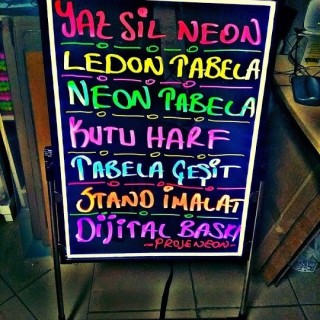 YAZ SİL NEON
LEDON TABELA
NEON TABELA
KUTU HARF
TABELA ÇEŞİT
STAND İMALAT
DİJİTAL BASKI
-PROJENEON-